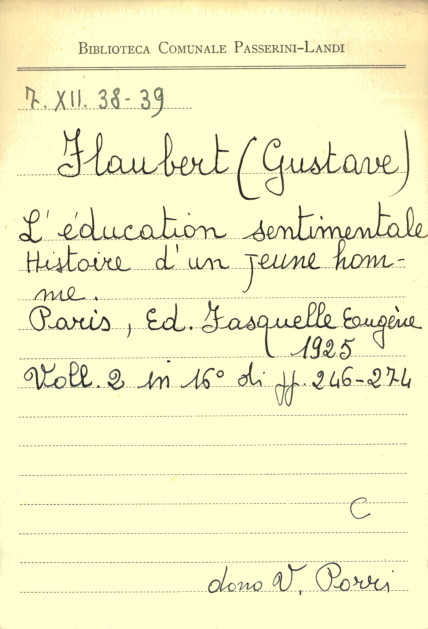 BIBLIOTECA COMUNALE PASSERINI-LANDI
7. XII. 38-39
Flaubert (Gustave)
L'éducation sentimentale
Histoire d'un jeune hom-
me.
Paris, Ed. Fasquelle Eugène
1925
Voll. 2 in 16° di pp. 246-274
C
dono V. Porri